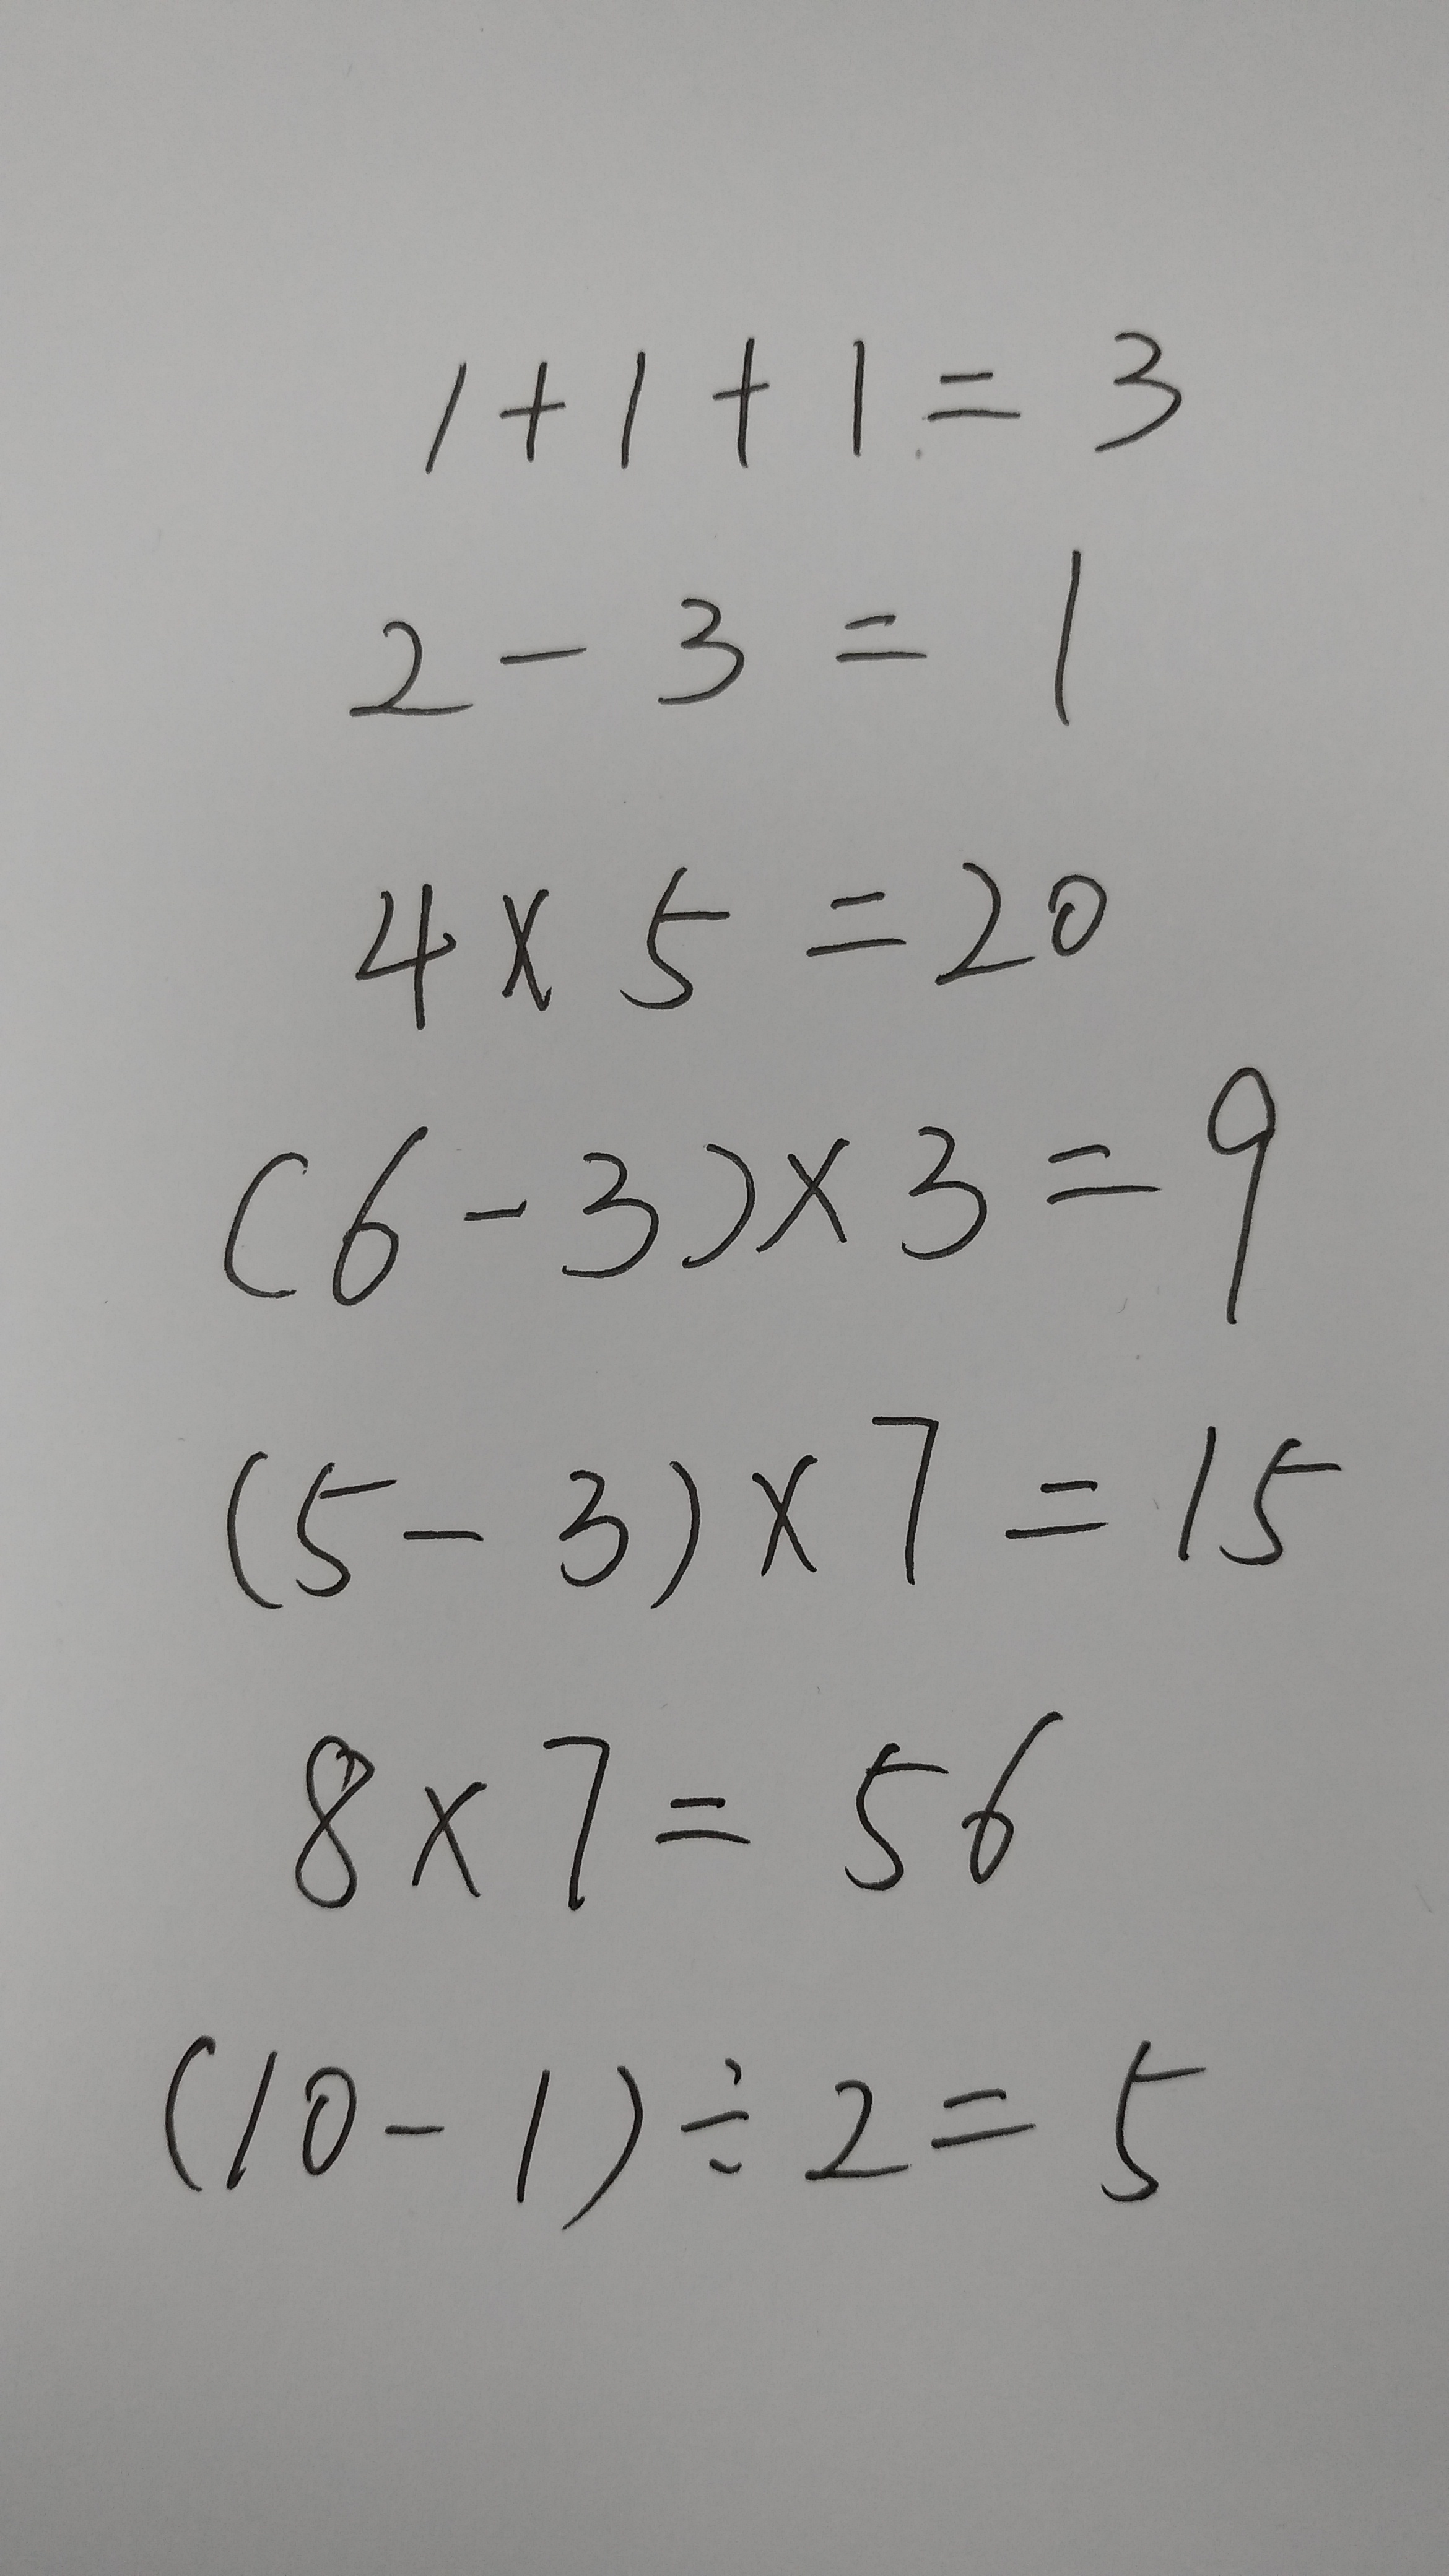 1+1+1=3
2-3=1
4×5=20
(6-3)×3=9
(5-3)×7=15
8×7=56
(10-1)÷2=5